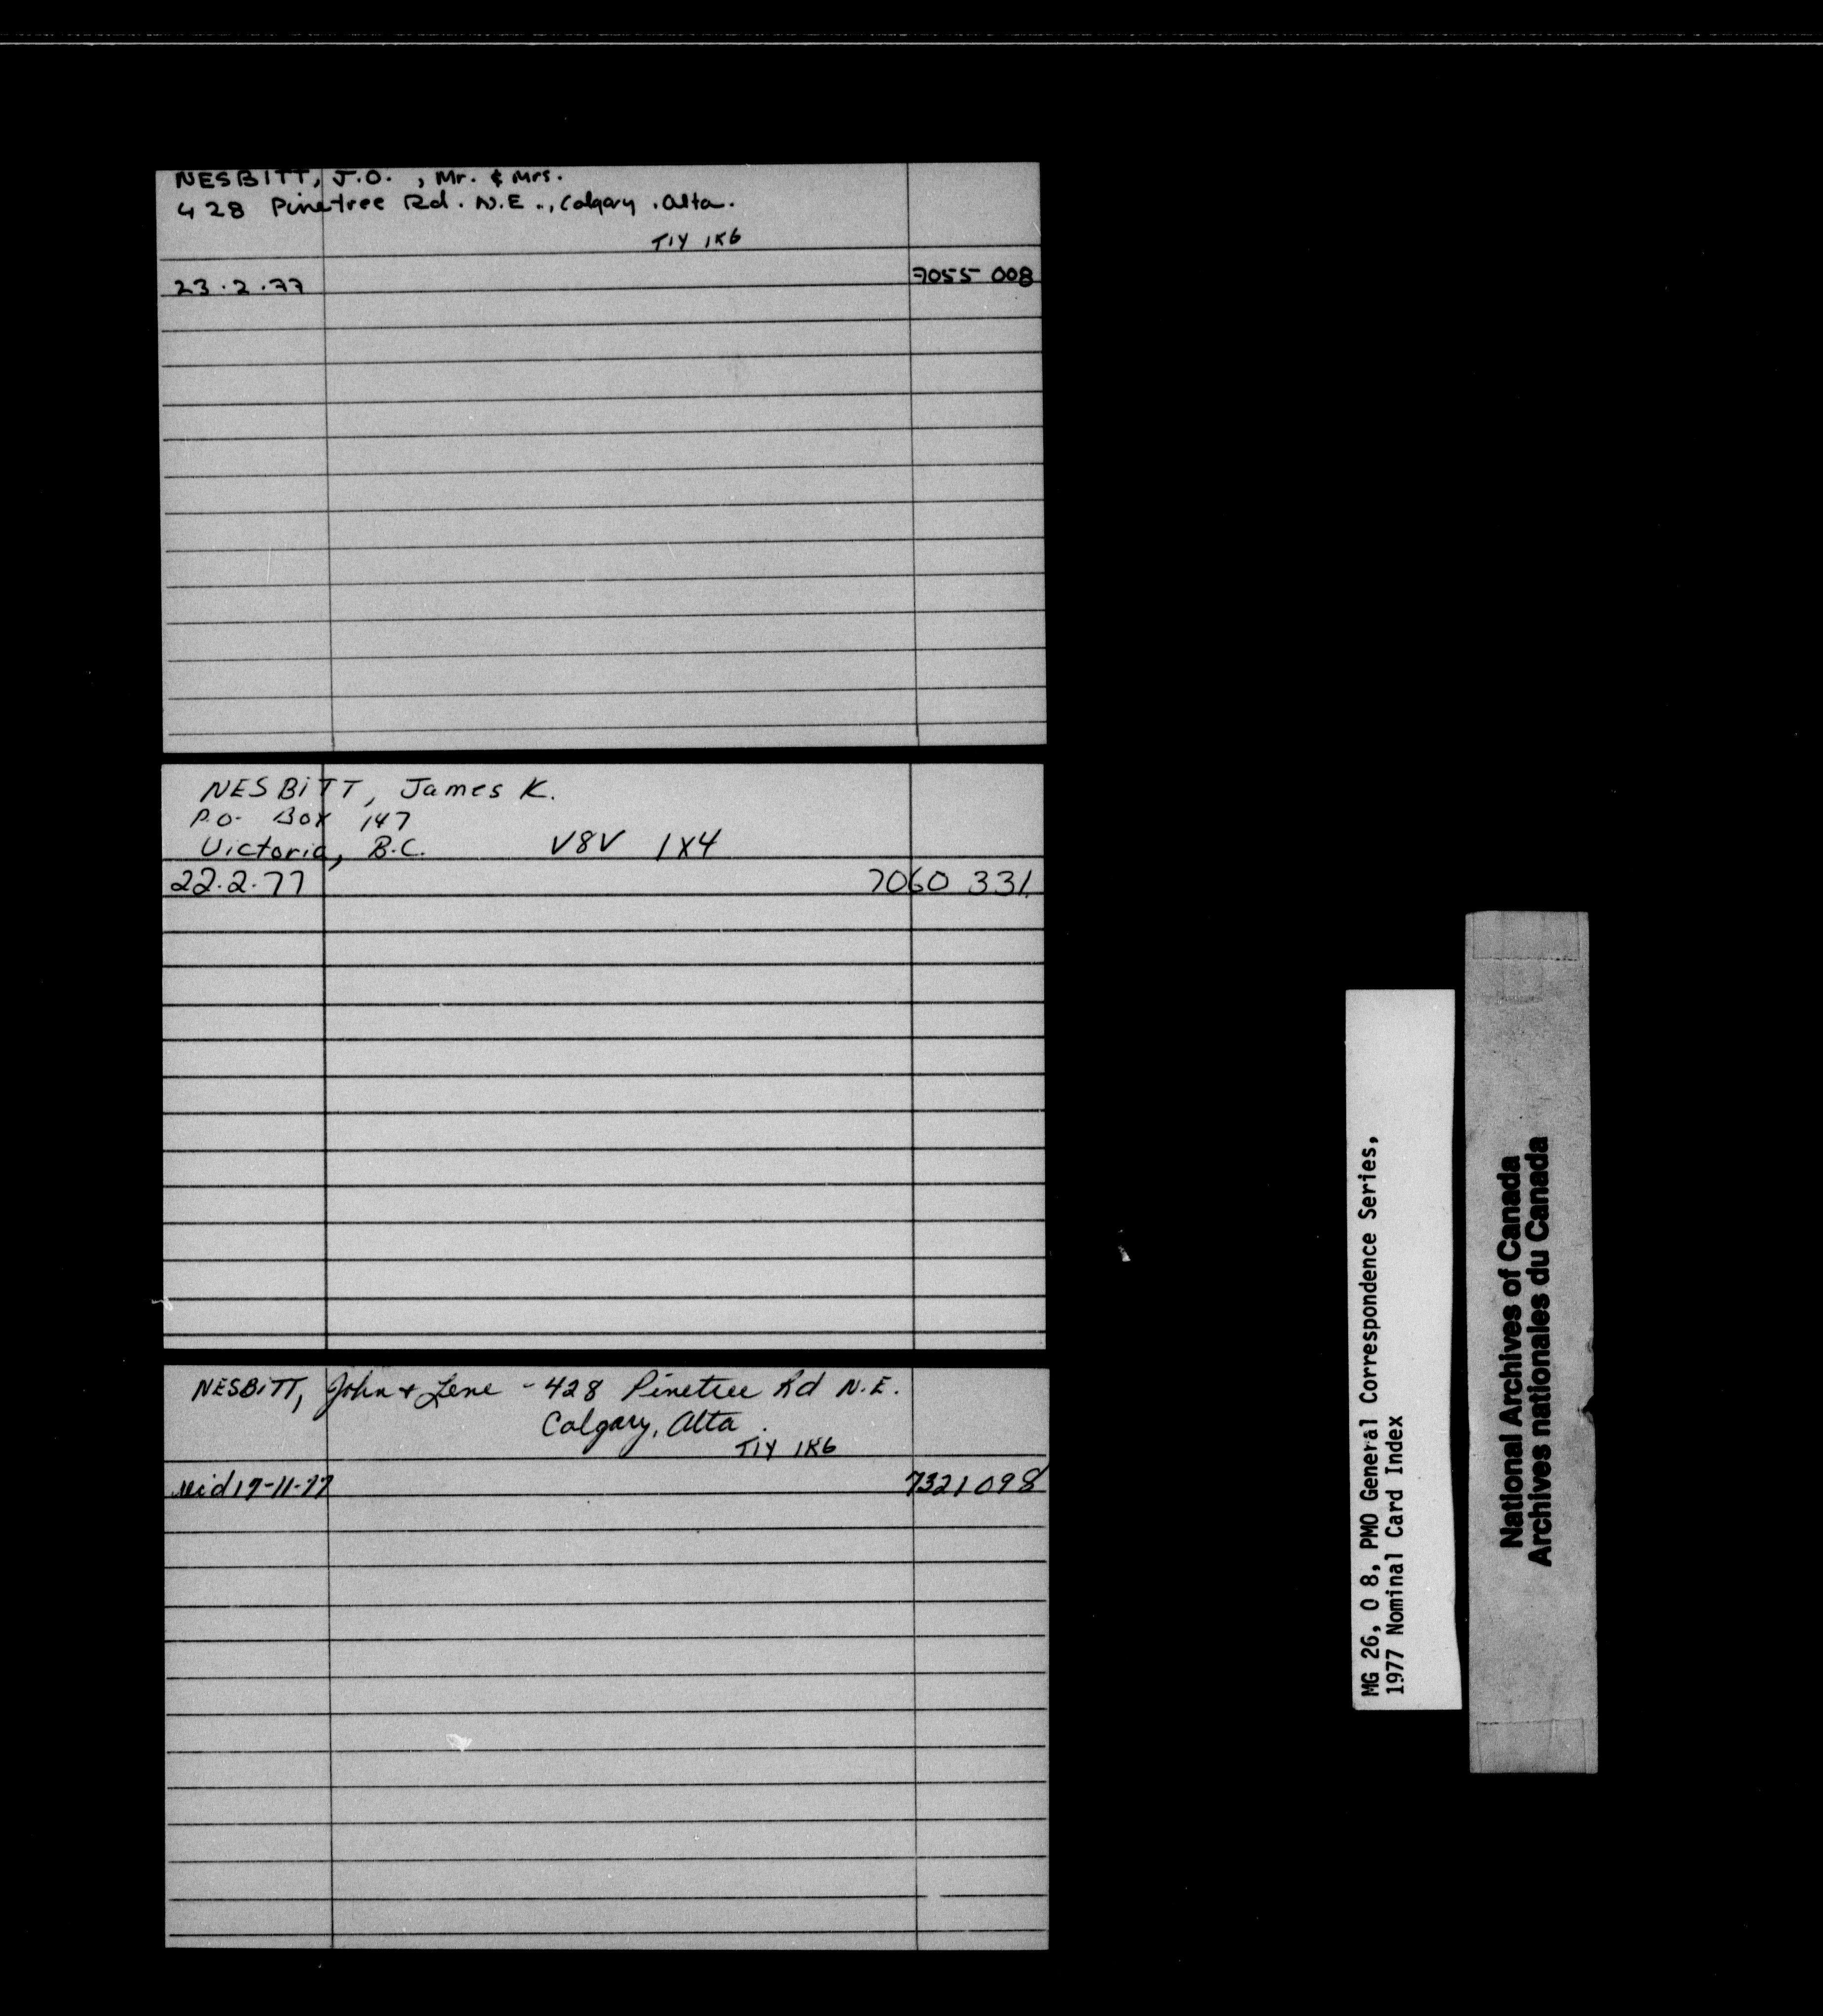 NESBITT, J.O. , Mr. & Mrs.
428 Pinetree Rd. N.E., Calgary, Alta.
T1Y 1K6
23.2.77 7055 008
NESBITT, James K.
P.O. Box 147
Victoria, B.C. V8V 1X4
22.2.77 7060 331
NESBITT, John + - 428 Pinetree Rd N.E.
Calgary, Alta.
T1Y 1K6
7321098
MG 26, O 8, PMO General Correspondence Series,
1977 Nominal Card Index
National Archives of Canada
Archives nationales du Canada